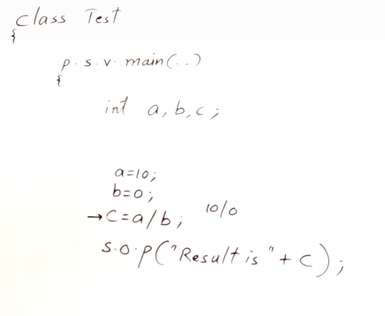 class Test
{
p. s. v. main(..)
{
int a,b,c;
a=10;
b=0;
→c=a/b; 10/0
S.O.P("Result is"+c);